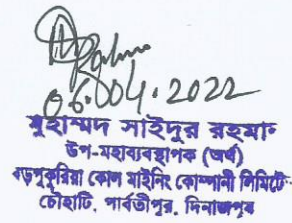 06.04.2022
মুহাম্মদ সাইদুর রহমান
উপ-মহাব্যবস্থাপক (অর্থ)
বড়পুকুরিয়া কোল মাইনিং কোম্পানী লিমিটে
চৌহাটি, পার্বতীপুর, দিনাজপুর